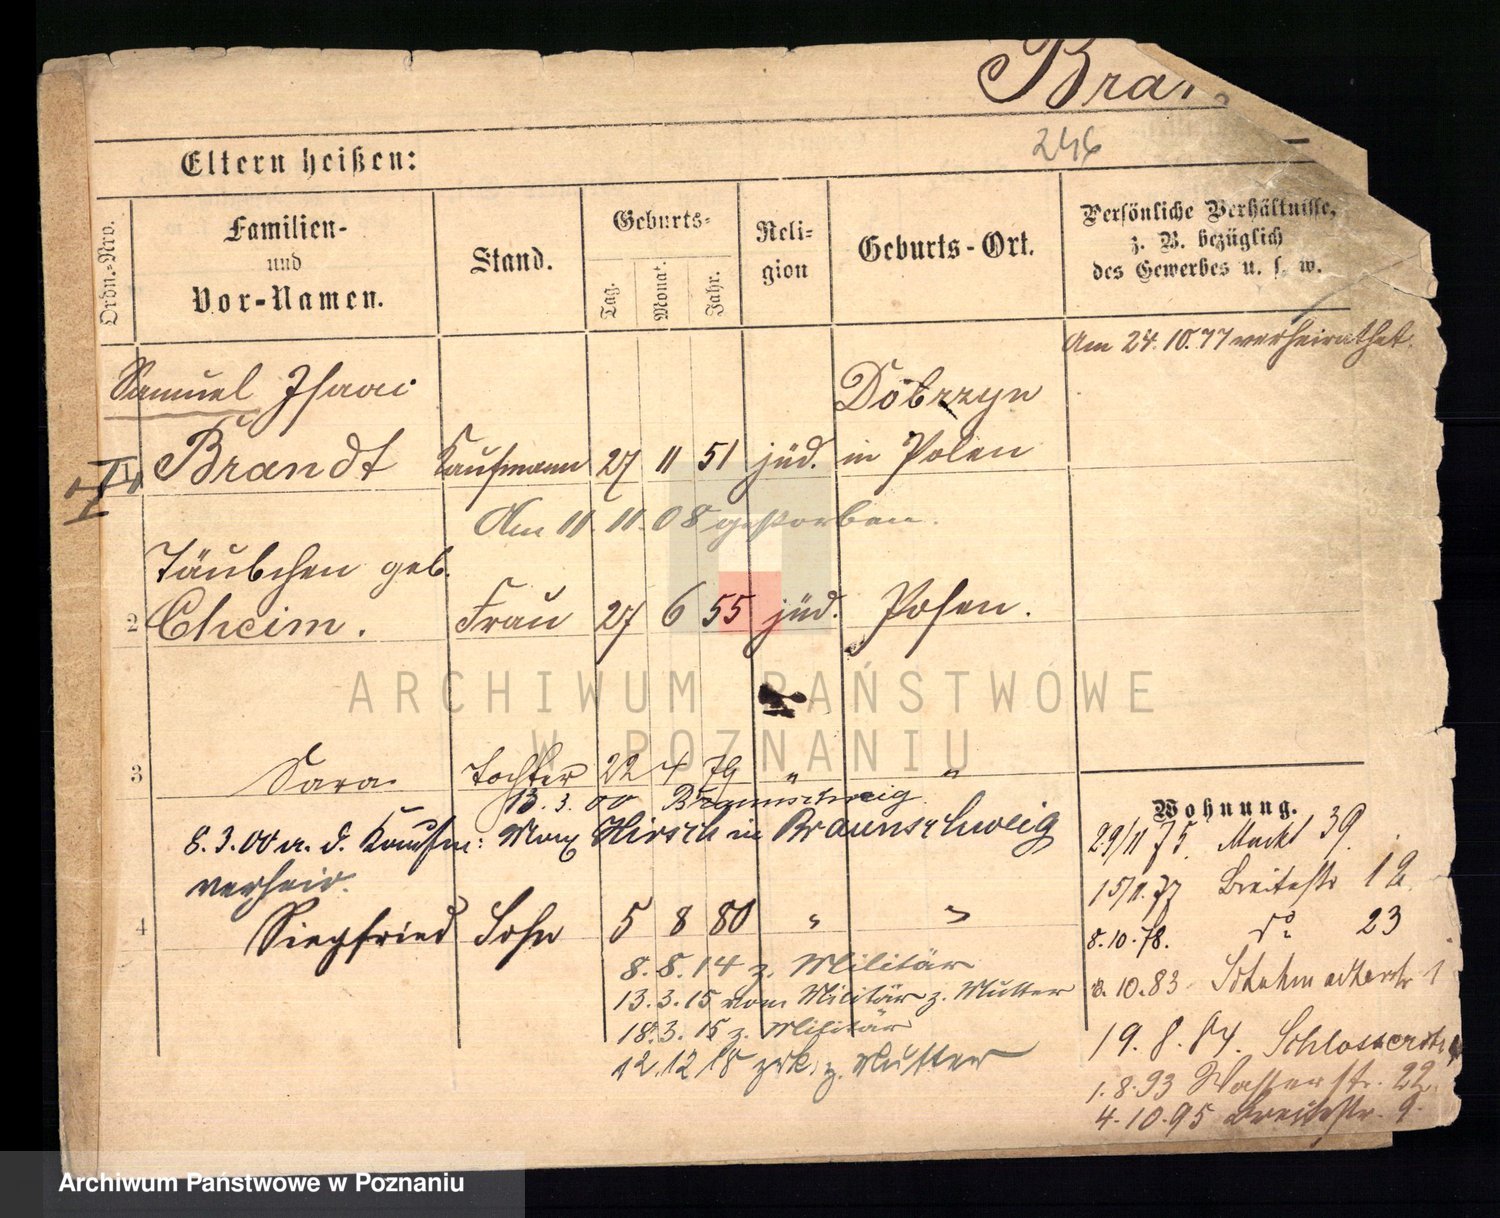 Bran
246
Eltern heißen:
Ordn.-Nro.
Familien-
und
Vor-Namen.
Stand.
Geburts-
Tag.
Monat.
Jahr.
Reli-
gion
Geburts-Ort.
Persönliche Verhältnisse,
z. B. bezüglich
des Gewerbes u. s. w.
Am 24.10.77 verheirathet.
Samuel Isaac
Brandt Kaufmann 27 11 51 jüd.
Dobrzyn
in Polen
Am 11 11 08 gestorben.
Täubchen geb.
2 Cheim. Frau 27 6 55 jüd. Posen.
3 Sara Tochter 22 4 79 " "
13.3.00 Braunschweig
8.3.00 m. d. Kaufm: Max Hirsch in Braunschweig
verheir.
4 Siegfried Sohn 5 8 80 " "
8.8.14 z. Militär
13.3.15 vom Militär z. Mutter
18.3.15 z. Militär
12.12.18 zrk. z. Mutter
Wohnung.
29/11 75. Markt 39.
Breitestr 12
8.10.78. do 23
10.83
19.8.84. Schlosserstr
1.8.93 Wasserstr. 22
4.10.95 Breitestr. 9.
ARCHIWUM PAŃSTWOWE
W POZNANIU
Archiwum Państwowe w Poznaniu